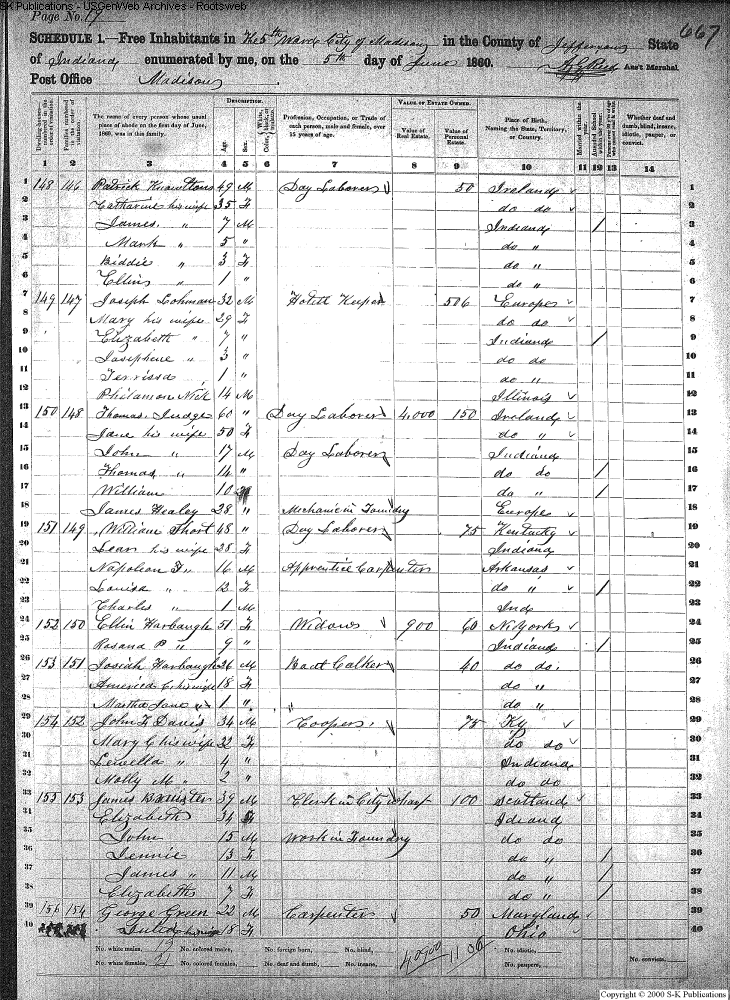 S-K Publications - USGenWeb Archives - Rootsweb
Page No. 17
667
SCHEDULE 1.—Free Inhabitants in The 5th Ward City of Madison in the County of Jefferson State
of Indiana enumerated by me, on the 5th day of June 1860. Ass't Marshal.
Post Office Madison
DESCRIPTION. VALUE OF ESTATE OWNED.
The name of every person whose usual place of abode on the first day of June, 1860, was in this family. Age. Sex. Profession, Occupation, or Trade of each person, male and female, over 15 years of age. Value of Real Estate. Value of Personal Estate. Place of Birth, Naming the State, Territory, or Country. Married within the year. Whether deaf and dumb, blind, insane, idiotic, pauper, or convict.
1 2 3 4 5 6 7 8 9 10 11 12 13 14
1 148 146 Patrick Knowlton 49 M Day Laborer 50 Ireland 1
2 Catharine his wife 35 F do do 2
3 James " 7 M Indiana / 3
4 Mark " 5 " do " 4
5 Biddie " 3 F do " 5
6 Ellin " 1 " do " 6
7 149 147 Joseph Lohman 32 M Hotell Keeper 506 Europe 7
8 Mary his wife 29 F do do 8
9 Elizabeth " 7 " Indiana / 9
10 Josephene " 3 " do do 10
11 Terrissa 1 " do " 11
12 Philamon Nick 14 M Illinois 12
13 150 148 Thomas Judge 60 " Day Laborer 4,000 150 Ireland 13
14 Jane his wife 50 F do " 14
15 John " 17 M Day Laborer Indiana 15
16 Thomas " 14 " do do / 16
17 William 10 do " / 17
18 James Healey 28 " Mechanic in Foundry Europe 18
19 151 149 William Short 48 " Day Laborer 75 Kentucky 19
20 his wife 28 F Indiana 20
21 Napoleon " 16 M Apprentice Carpenter Arkansas 21
22 Louisa " 12 F do " / 22
23 Charles " 1 M Ind 23
24 152 150 Ellin Harbaugh 51 F Widow 900 60 N. York 24
25 Rosana P " 9 " Indiana / 25
26 153 151 Josiah Harbaugh 26 M Boat Calker 40 do do 26
27 America his wife 18 F do " 27
28 Martha Jane " 1 " " do " 28
29 154 152 John F Davis 34 M Cooper 75 Ky 29
30 Mary C his wife 32 F do do 30
31 Lewella " 4 " Indiana 31
32 Molly M " 2 " do do 32
33 155 153 James 39 M Clerk in City wharf 100 Scotland 33
34 Elizabeth 34 F Idiana 34
35 John 15 M Work in Foundry do do 35
36 Jennie 13 F do " / 36
37 James " 11 M do " / 37
38 Elizabeth 7 F do " / 38
39 156 154 George Green 22 M Carpenter 50 Maryland 39
40 his wife 18 F Ohio 40
No. white males, 19 No. colored males, No. foreign born, No. blind, No. idiotic,
No. white females, 21 No. colored females, No. deaf and dumb, No. insane, 40900 1106 No. paupers, No. convicts,
Copyright © 2000 S-K Publications